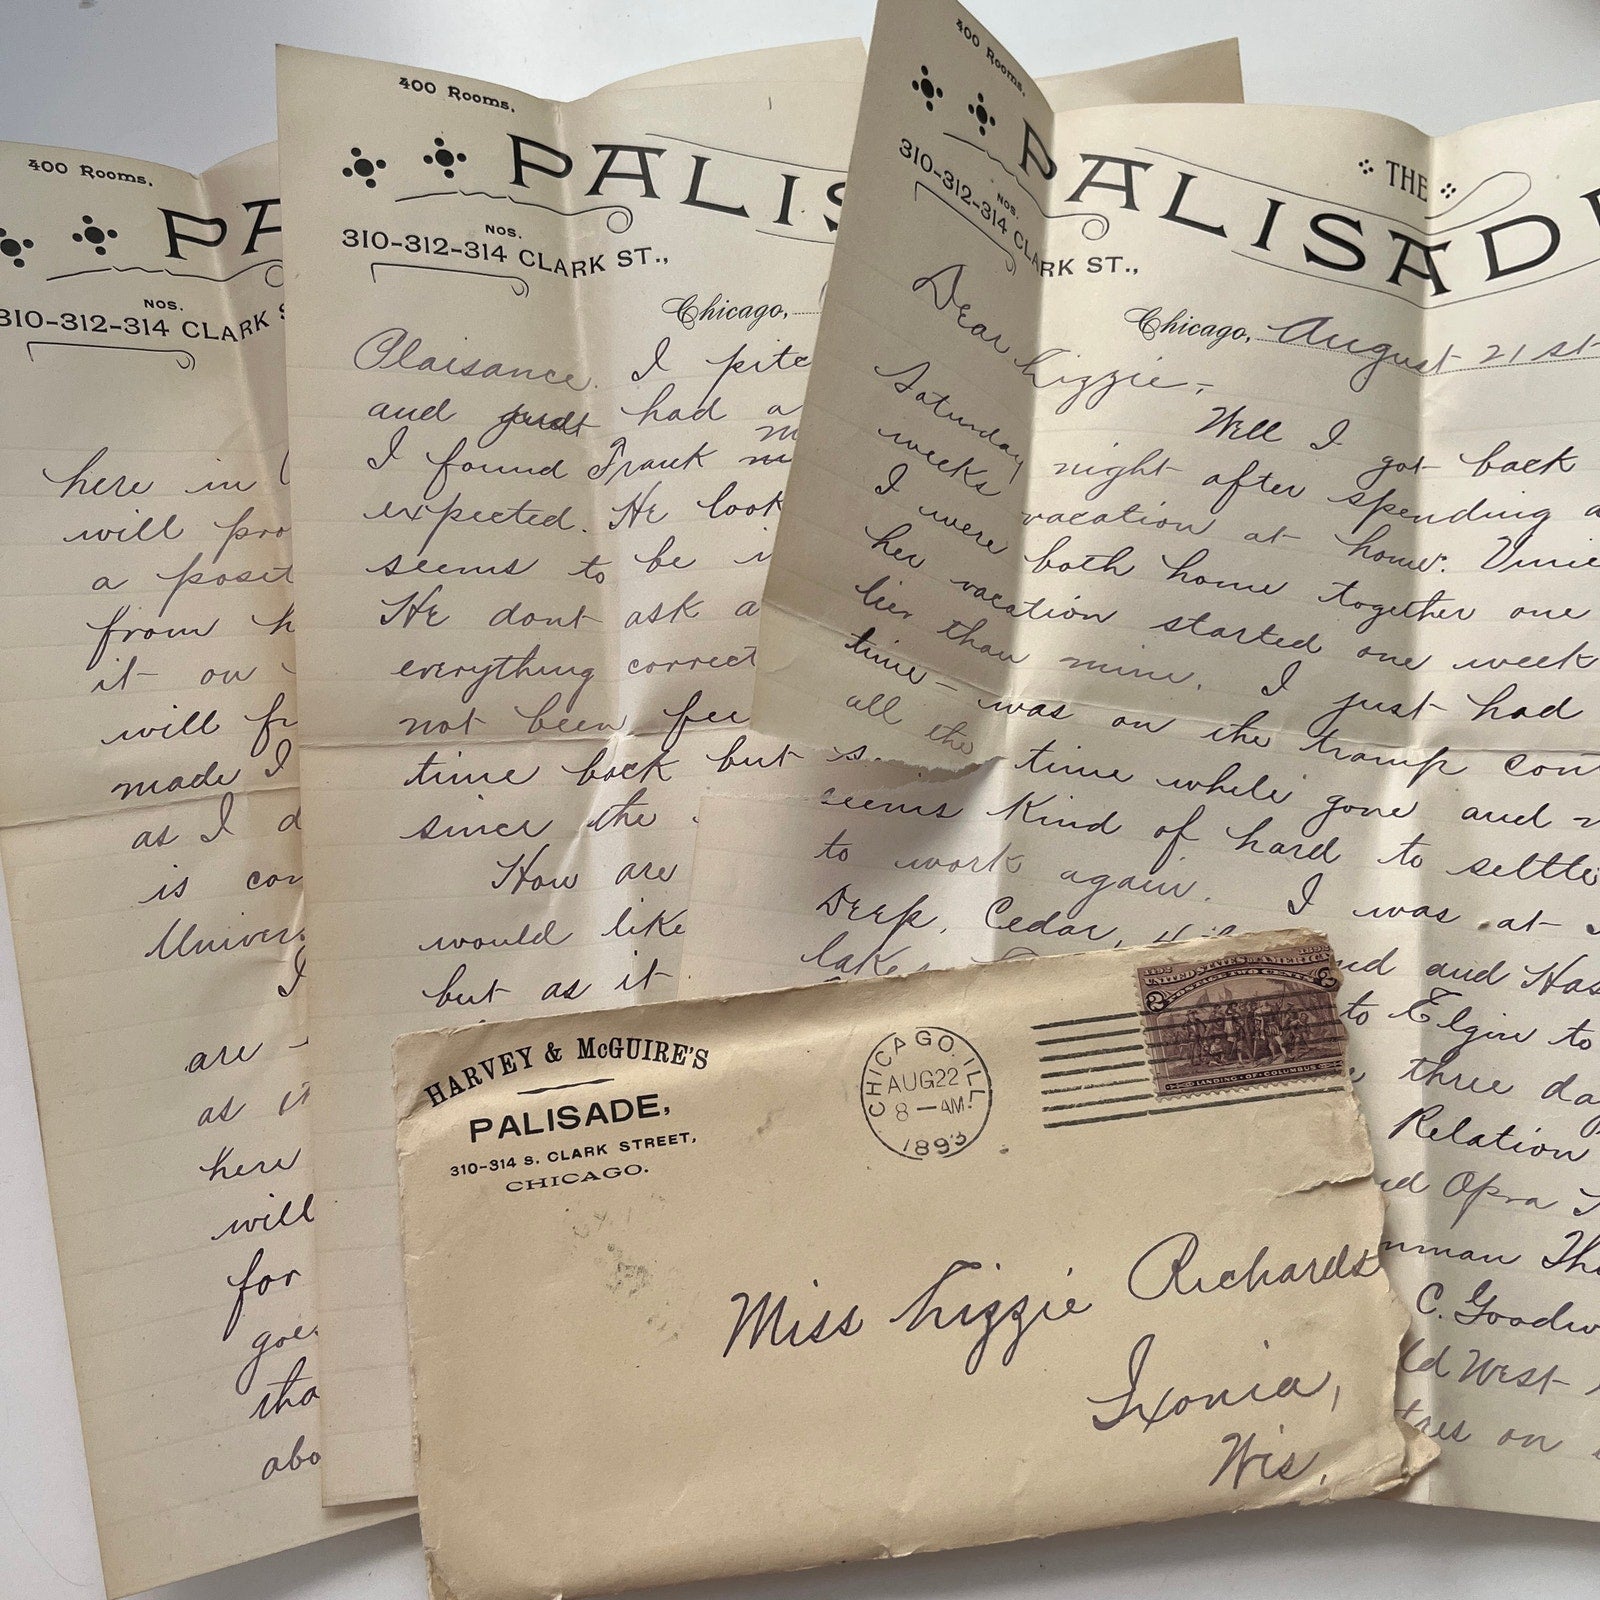 400 Rooms.
PA
NOS.
310-312-314 CLARK S
here in
will pro
a posit
from h
it on
will fr
made I
as I d
is con
Univers
I
are
as it
here
will
for
goes
tha
abo
400 Rooms.
PALIS
NOS.
310-312-314 CLARK ST.,
Chicago,
Plaisance. I pitc
and had a
I found Frank
expected. He look
seems to be i
He dont ask a
everything correct
not been fee
time back but s
since the
How are
would like
but as it
400 Rooms.
THE
PALISADE
NOS.
310-312-314 CLARK ST.,
Chicago, August 21st
Dear Lizzie,
Well I got back
Saturday night after spending a
weeks vacation at home. Vinie
I were both home together one
her vacation started one week
lier than mine. I just had
time was on the tramp cont
all the time while gone and
seems kind of hard to settle
to work again. I was at
Deep, Cedar, and and Has
lake to Elgin to
three day
Relation
d Opra
nman The
C. Goodw
ld West
tres on
HARVEY & McGUIRE'S
PALISADE,
310-314 S. CLARK STREET,
CHICAGO.
CHICAGO, ILL.
AUG 22
8-AM
1893
1492 UNITED STATES OF AMERICA 1892
POSTAGE TWO CENTS
2 2
LANDING OF COLUMBUS
Miss Lizzie Richards
Ixonia,
Wis.